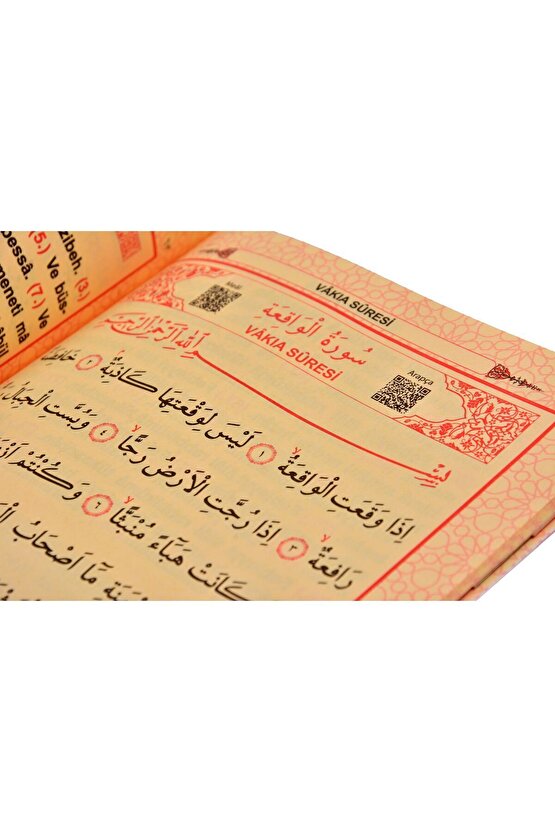 zibeh. (3.)
(5.) Ve büs-
bessâ. (7.) Ve
meneti mâ
VÂKIA SÛRESİ
Meâl
سُورَةُ الْوَاقِعَةِ
VÂKIA SÛRESİ
Arapça
بِسْمِ اللّٰهِ الرَّحْمٰنِ الرَّحِيمِ
اِذَا وَقَعَتِ الْوَاقِعَةُۙ ١ لَيْسَ لِوَقْعَتِهَا كَاذِبَةٌ ٢ خَافِضَةٌ
رَافِعَةٌۙ ٣ اِذَا رُجَّتِ الْاَرْضُ رَجًّاۙ ٤ وَبُسَّتِ الْجِبَالُ
كَانَتْ هَبَٓاءً مُنْبَثًّاۙ ٦ وَكُنْتُمْ
مَٓا اَصْحَابُ